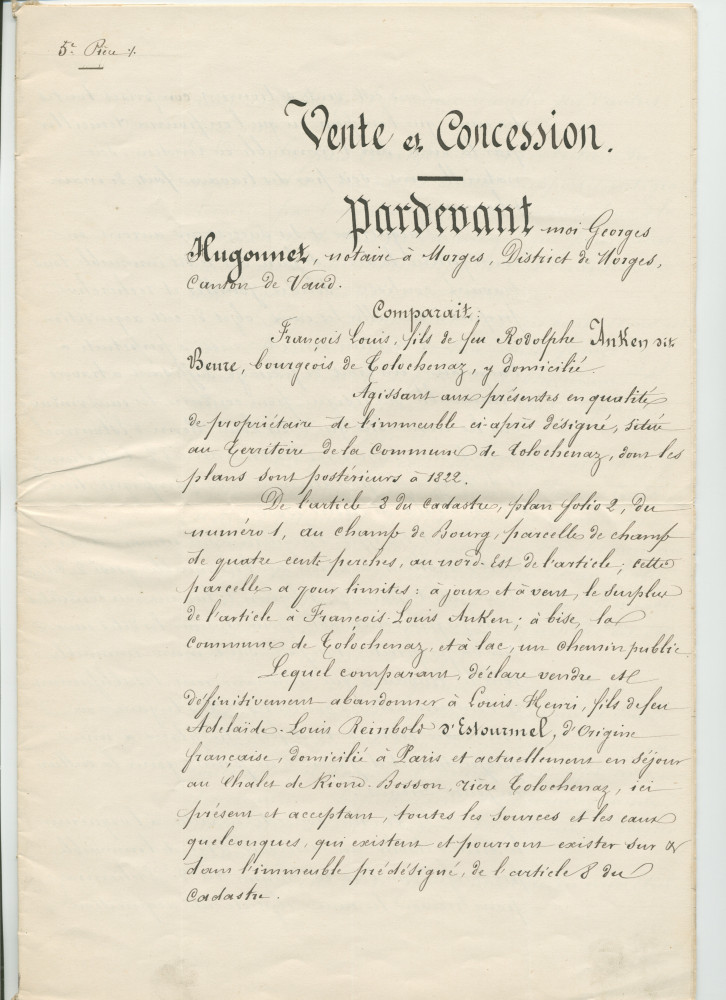 5e Pièce %
Vente et Concession.
Pardevant moi Georges
Hugonnet, notaire à Morges, District de Morges,
Canton de Vaud.
Comparait:
François Louis, fils de feu Rodolphe Anken dit
Beure, bourgeois de Tolochenaz, y domicilié.
Agissant aux présentes en qualité
de propriétaire de l'immeuble ci-après désigné, situé
au territoire de la commune de Tolochenaz, dont les
plans sont postérieurs à 1822.
De l'article 3 du cadastre, plan folio 2, du
numéro 1, au champ de Bourg, parcelle de champ
de quatre cents perches, au nord-Est de l'article; cette
parcelle a pour limites: à joux et à vent, le surplus
de l'article à François-Louis Anken; à bise, la
commune de Tolochenaz, et à lac, un chemin public.
Lequel comparant, déclare vendre et
définitivement abandonner à Louis-Henri, fils de feu
Adelaïde-Louis Reinbold d'Estourmel, d'Origine
française, domicilié à Paris et actuellement en séjour
au Chalet de Riond-Bosson, rière Tolochenaz, ici
présent et acceptant, toutes les sources et les eaux
quelconques, qui existent et pourront exister sur &
dans l'immeuble prédésigné, de l'article 8 du
Cadastre.